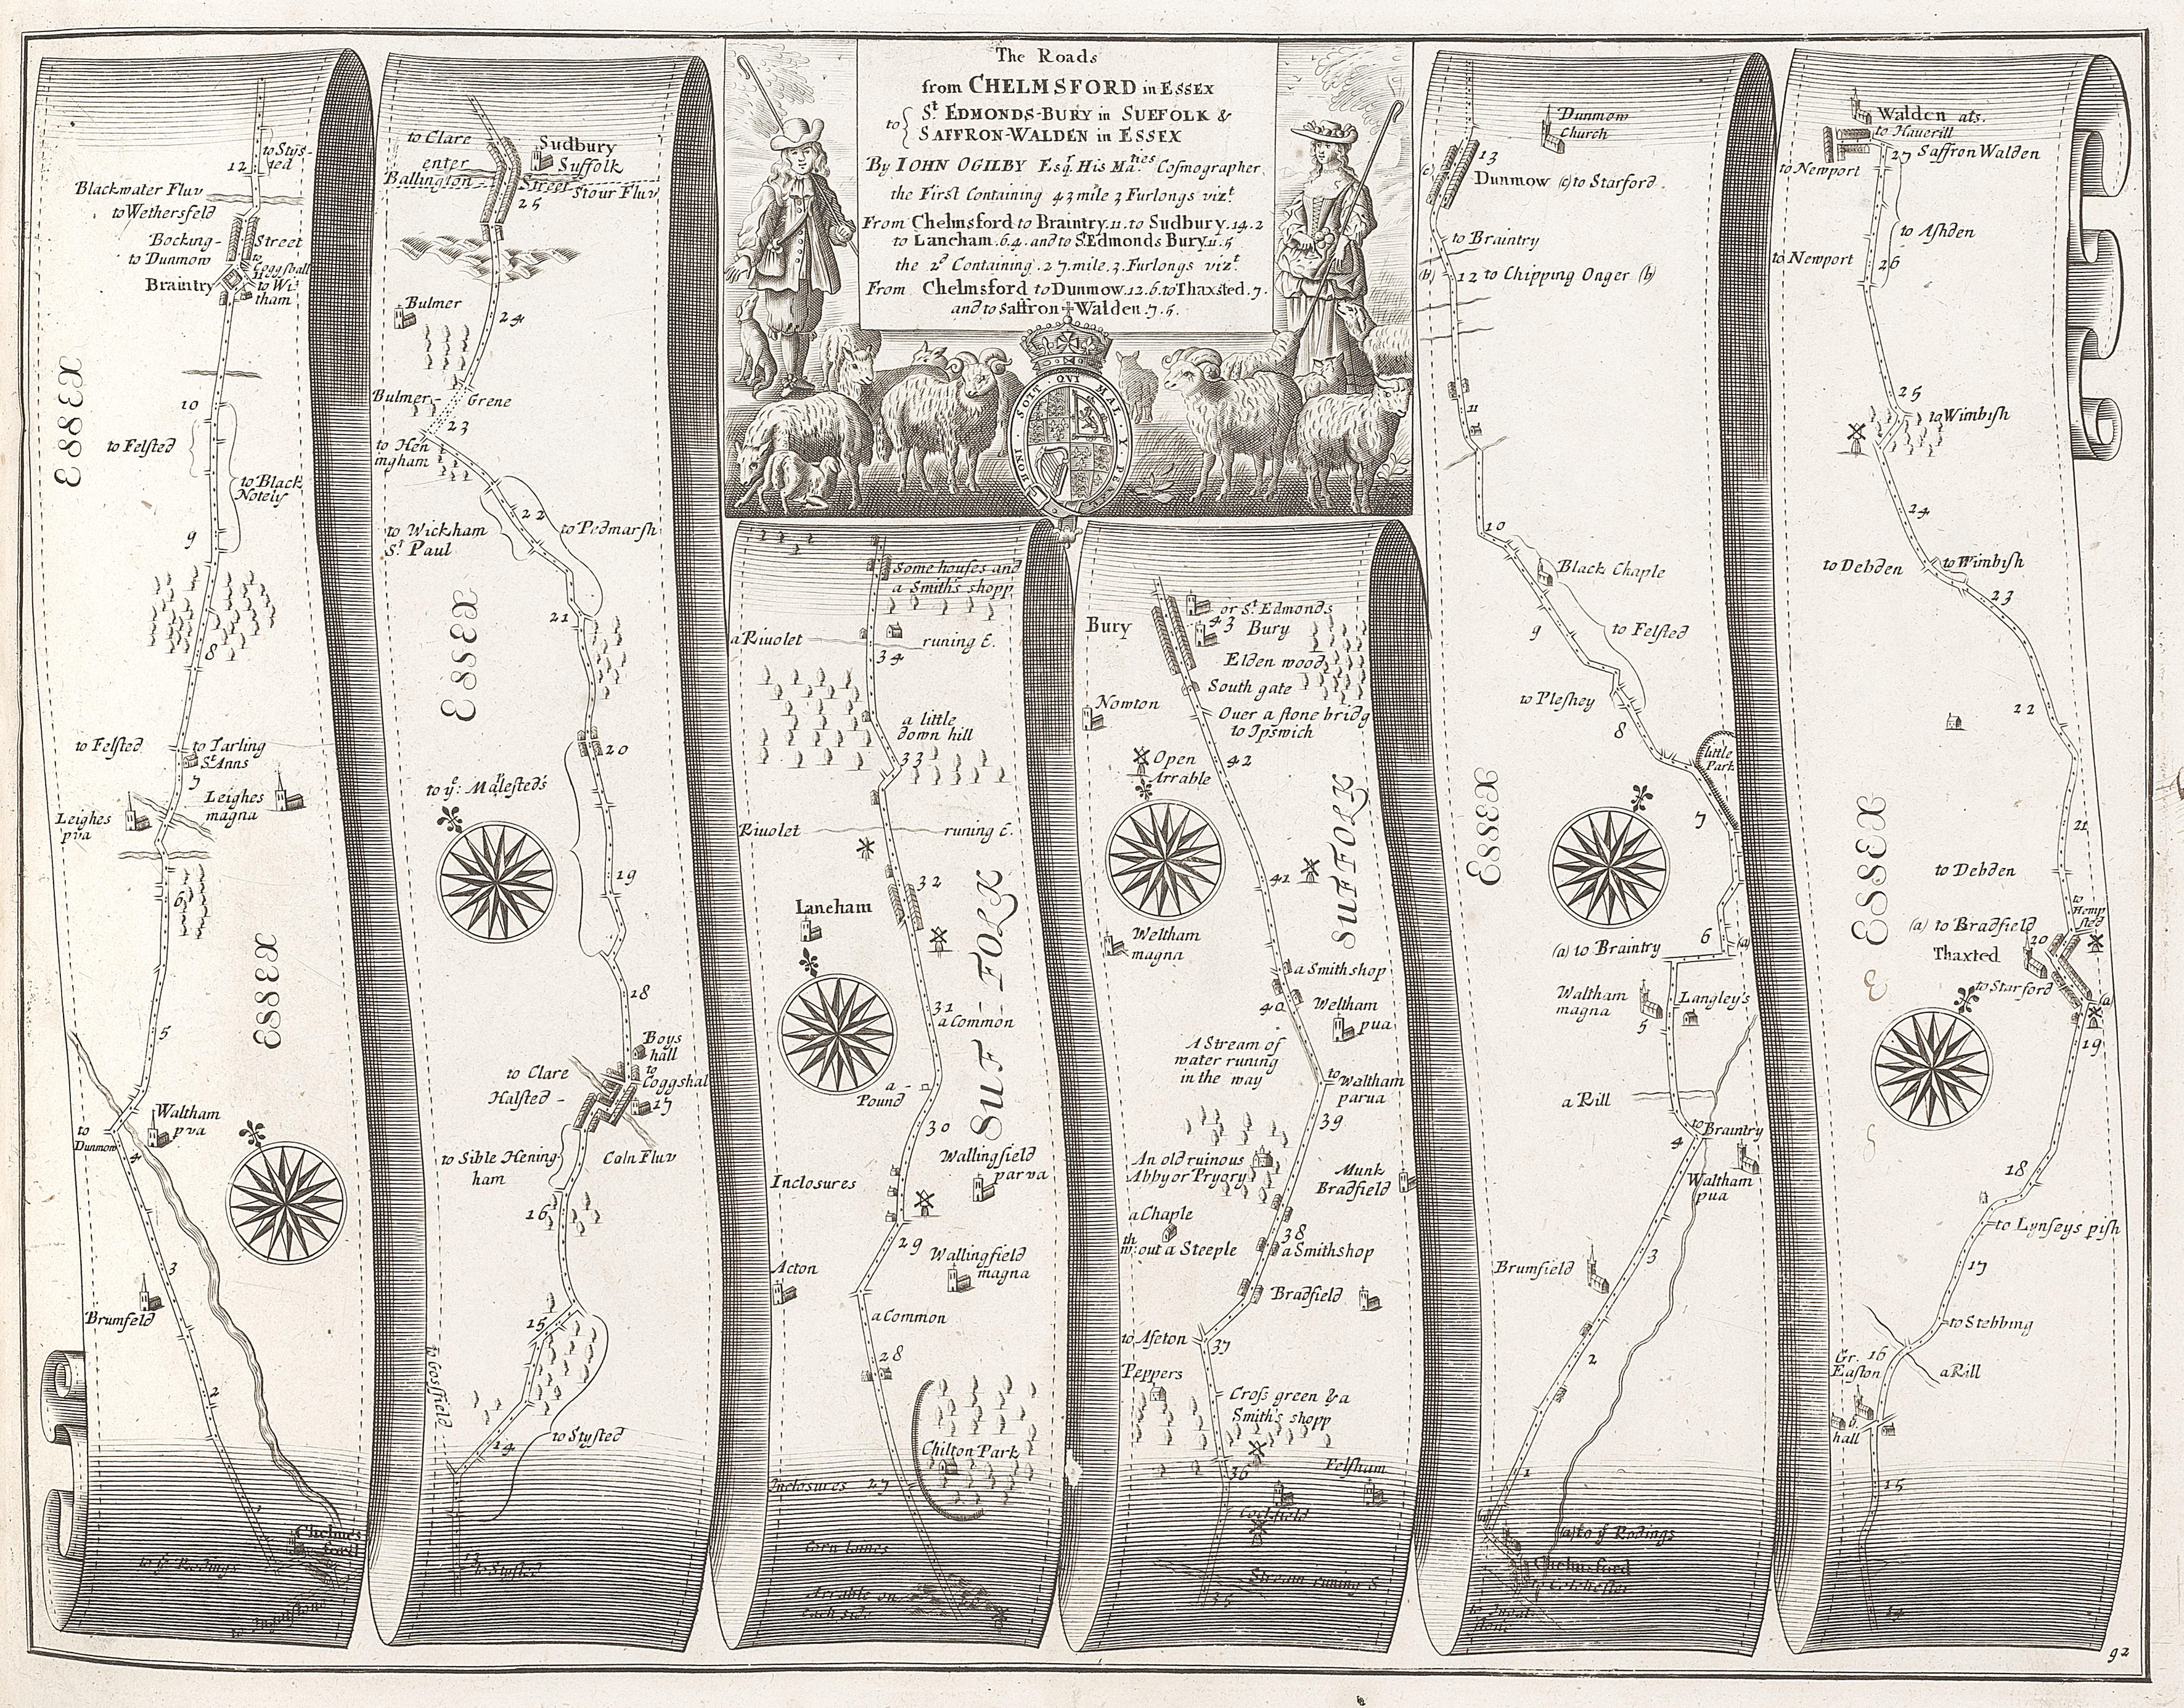 The Roads
from CHELMSFORD in ESSEX
to { St EDMONDS-BURY in SUFFOLK &
SAFFRON-WALDEN in ESSEX
By IOHN OGILBY Esqr. His Maties Cosmographer.
the First Containing 43 mile 3 Furlongs vizt
From Chelmsford to Braintry.11. to Sudbury.14.2
to Lancham.6.4. and to St Edmonds Bury.11.5
the 2d Containing.27.mile.3.Furlongs vizt.
From Chelmsford to Dunmow.12.6. to Thaxsted.7.
and to Saffron Walden.7.5.
HONI SOIT QVI MAL Y PENSE
to Sys-
ted
12
Blackwater Fluv
to Wethersfeld
Bocking-
Street
to Dunmow
to
Coggshall
11
Braintry
to Wi
tham
ESSEX
10
to Felsted
to Black
Notely
9
8
to Felsted
to Tarling
St Anns
7
Leighes
magna
Leighes
pva
6
ESSEX
5
Waltham
pva
to
Dunmow
4
3
Brumfeld
2
1
Chelmes
ford
to ye Rodings
to Clare
Sudbury
Suffolk
enter
Ballington
Street
Stour Fluv
25
Bulmer
24
Bulmer-
Grene
23
to Hen
ingham
22
to Pedmarsh
to Wickham
St Paul
ESSEX
21
20
to ye: Malesteds
19
18
Boys
hall
to Clare
to
Coggshal
Halsted -
17
to Sible Hening
ham
Coln Fluv
16
15
to Gosfield
to Stysted
14
13
to Stysted
Some houses and
a Smiths shopp
a Rivolet
runing E.
34
a little
down hill
33
Rivolet
runing E.
32
Laneham
31
a Common
SUF-FOLK
a
Pound
30
Wallingfield
parva
Inclosures
29
Wallingfield
magna
Acton
a Common
28
Chilton Park
Inclosures
27
Corn lanes
Arrable on
each side
Bury
or St Edmonds
43 Bury
Elden wood
South gate
Nowton
Over a stone bridg
to Ipswich
42
Open
Arrable
SUFFOLK
41
Weltham
magna
a Smith shop
40
Weltham
pua
A Stream of
water runing
in the way
to
Waltham
parua
39
An old ruinous
Abby or Pryory
Munk
Bradfield
a Chaple
wth:out a Steeple
38
a Smith shop
Bradfield
to Aseton
37
Peppers
Cross green & a
Smith's shopp
36
Felsham
Cockfield
Stream runing S
35
Dunmow
Church
(c)
13
Dunmow (c) to Starford.
to Braintry
(b) 12 to Chipping Onger (b)
11
10
Black Chaple
9
to Felsted
to Pleshey
8
little
Park
ESSEX
7
6
(a)
(a) to Braintry
Waltham
magna
5
Langley's
a Rill
to Braintry
4
Waltham
pua
3
Brumfield
2
1
(a)
(a) to ye Rodings
Chelmsford
to Colchester
to Ingat-
stone
Walden als.
to Haverill
27 Saffron Walden
to Newport
to Ashden
to Newport
26
25
to Wimbish
24
to Debden
to Wimbish
23
22
ESSEX
21
to Debden
to
Hemp
sted
(a) to Bradfield
20
Thaxted
to Starford
(a)
19
18
to Lynseys pish
17
to Stebbing
Gr.
Easton
16
a Rill
hall
15
14
92